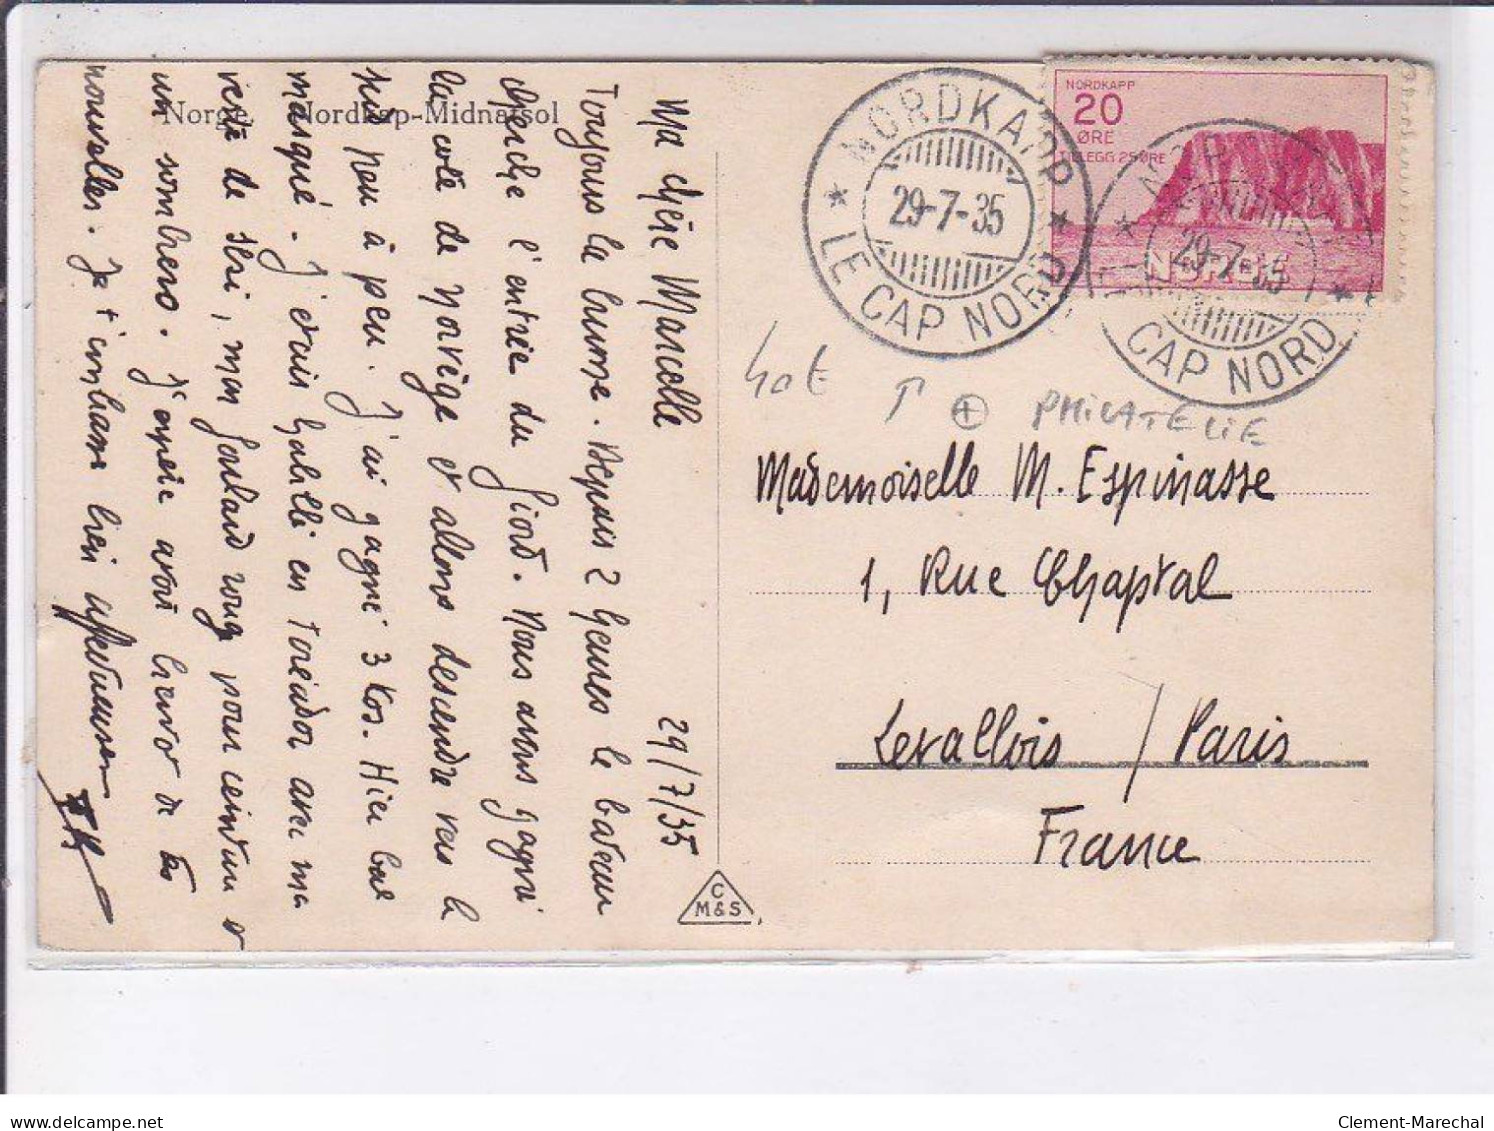 Norge. Nordkap-Midnatsol
Ma chère Marcelle 29/7/35
Toujours la brume. Depuis 2 heures le bateau
cherche l'entrée du fiord. Nous avons gagné
la côte de Norvège et allons descendre vers le
peu à peu. J'ai gagné 3 kos. Hier bal
masqué. J'étais habillé en toréador avec ma
veste de ski, mon foulard rouge pour ceinture et
un sombrero. J'espère avoir bravo de tes
nouvelles. Je t'embrasse bien affectueusement
NORDKAPP
20
ØRE
TILLEGG 25 ØRE
NORGE
NORDKAPP
29-7-35
LE CAP NORD
29-7-35
CAP NORD
PHILATELIE
Mademoiselle M. Espinasse
1, Rue Chaptal
Levallois / Paris
France
C
M&S
Clement-Marechal